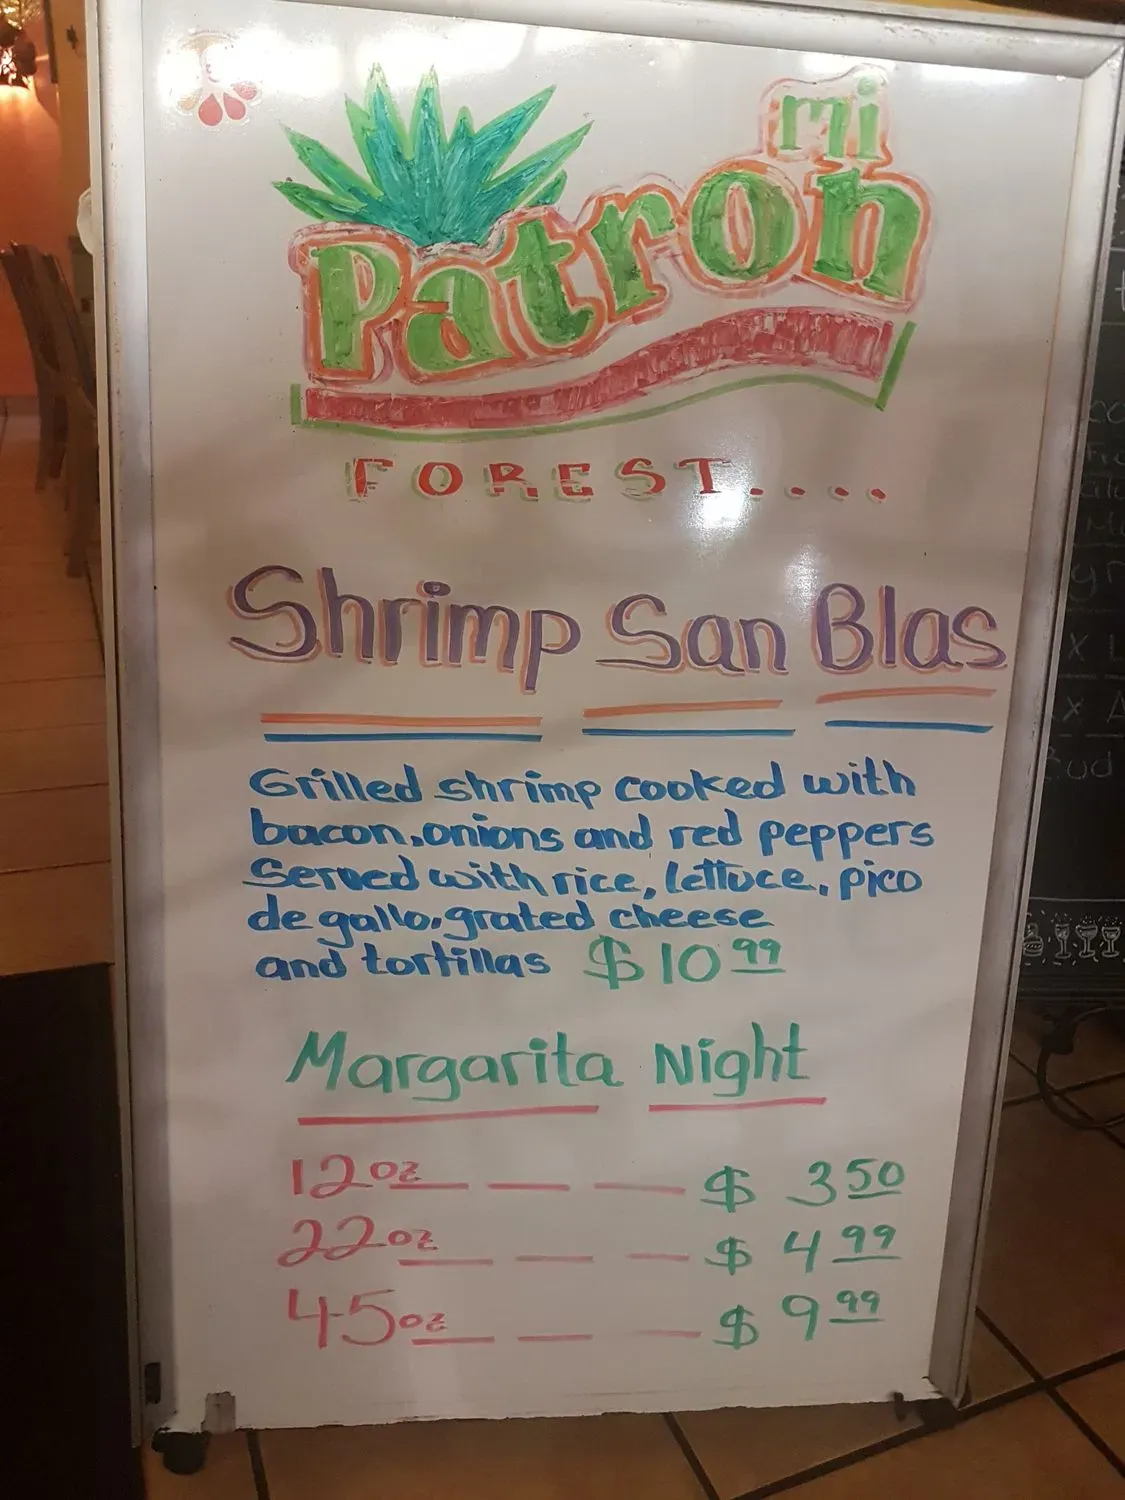 mi
Patron
FOREST....
Shrimp San Blas
Grilled shrimp cooked with
bacon, onions and red peppers
Served with rice, lettuce, pico
de gallo, grated cheese
and tortillas $10.99
Margarita Night
12oz _ _ _ $ 3.50
22oz _ _ _ $ 4.99
45oz _ _ _ $ 9.99
Bud